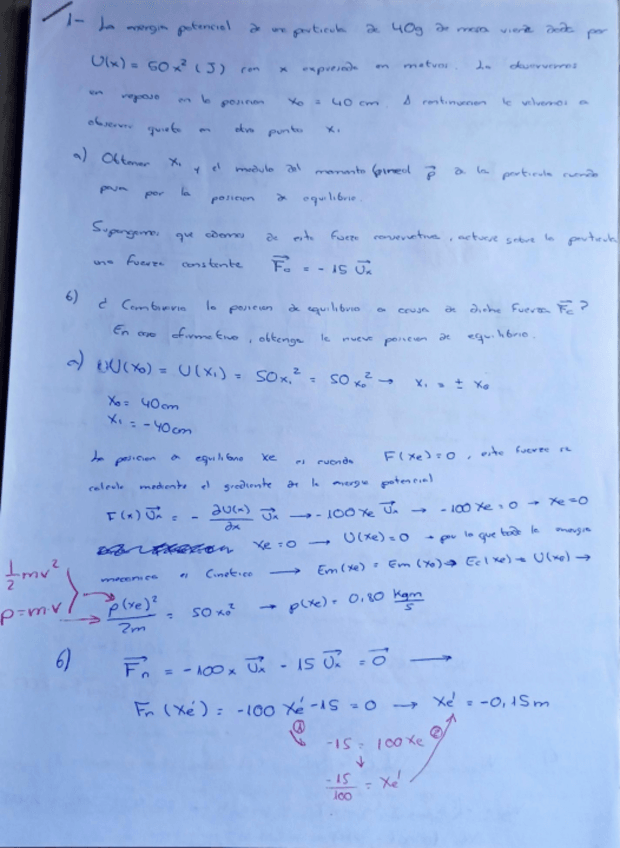 1- La energia potencial de una particula de 40g de masa viene dada por
U(x) = 50x² (J) con x expresada en metros. La observamos
en reposo en la posicion x₀ = 40 cm. A continuacion la volvemos a
observar quieta en otro punto x₁
a) Obtener x₁ y el modulo del momento lineal p⃗ de la particula cuando
pasa por la posicion de equilibrio.
Supongamos que ademas de esta fuerza conservativa, actuase sobre la particula
una fuerza constante F⃗c = - 15 U⃗x
b) ¿ Cambiaria la posicion de equilibrio a causa de dicha fuerza F⃗c ?
En caso afirmativo, obtenga la nueva posicion de equilibrio.
a) U(x₀) = U(x₁) = 50x₁² = 50x₀² → x₁ = ± x₀
x₀ = 40cm
x₁ = -40cm
La posicion de equilibrio xe es cuando F(xe)=0, esta fuerza se
calcula mediante el gradiente de la energia potencial
F(x) U⃗x = - ∂U(x)/∂x U⃗x → -100 xe U⃗x → -100 xe = 0 → xe=0
xe = 0 → U(xe) = 0 → por lo que toda la energia
mecanica es Cinetica → Em(xe) = Em(x₀) → Ec(xe) = U(x₀) →
½mv²
p=m·v
p(xe)²/2m = 50x₀² → p(xe) = 0,80 Kgm/s
b) F⃗n = -100x U⃗x - 15 U⃗x = 0⃗ →
Fn (xe') = -100 xe' -15 = 0 → xe' = -0,15m
① -15 = 100xe ②
↓
-15/100 = xe'